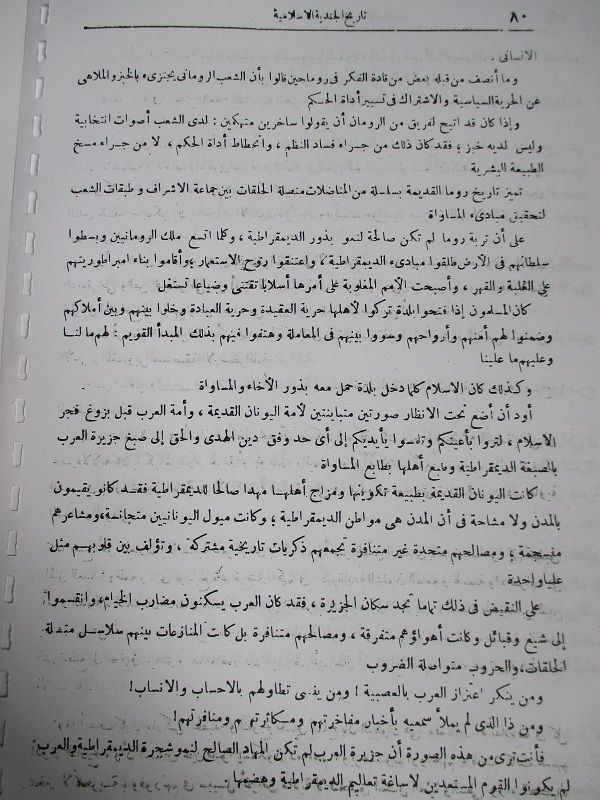 ٨٠
تاريخ الجندية الاسلامية
الانسانى .
وما أنصف من قبله بعض من قادة الفكر فى روما حين قالوا بأن الشعب الرومانى يجتزىء بالخبز والملاهى
عن الحرية السياسية والاشتراك فى تسيير أداة الحكم
وإذا كان قد اتيح لفريق من الرومان أن يقولوا ساخرين متهكمين : لدى الشعب أصوات انتخابية
وليس لديه خبز ؛ فقد كان ذلك من جراء فساد النظم ، وانحطاط أداة الحكم ، لا من جراء مسخ
الطبيعة البشرية
تميز تاريخ روما القديمة بسلسلة من المناضلات متصلة الحلقات بين جماعة الاشراف وطبقات الشعب
لتحقيق مبادىء المساواة
على أن تربة روما لم تكن صالحة لنمو بذور الديمقراطية ، وكلما اتسع ملك الرومانيين وبسطوا
سلطانهم فى الأرض طلقوا مبادىء الديمقراطية ، واعتنقوا روح الاستعمار ، وأقاموا بناء امبراطوريتهم
على الغلبة والقهر ، وأصبحت الأمم المغلوبة على أمرها أسلابا تقتنى وضياعا تستغل
كان المسلمون إذا فتحوا بلدة تركوا لأهلها حرية العقيدة وحرية العبادة وخلوا بينهم وبين أملاكهم
وضمنوا لهم أمنهم وأرواحهم وسووا بينهم فى المعاملة وهتفوا فيهم بذلك المبدأ القويم : لهم ما لنا
وعليهم ما علينا
وكذلك كان الاسلام كلما دخل بلدة حمل معه بذور الأخاء والمساواة
أود أن أضع تحت الانظار صورتين متباينتين لأمة اليونان القديمة ، وأمة العرب قبل بزوغ فجر
الاسلام ، لتروا بأعينكم وتلمسوا بأيديكم إلى أى حد وفق دين الهدى والحق إلى صبغ جزيرة العرب
بالصبغة الديمقراطية وطبع أهلها بطابع المساواة
كانت اليونان القديمة بطبيعة تكوينها ومزاج أهلها مهدا صالحا للديمقراطية فقد كانو يقيمون
بالمدن ولا مشاحة فى أن المدن هى مواطن الديمقراطية ؛ وكانت ميول اليونانيين متجانسة ، ومشاعرهم
منسجمة ؛ ومصالحهم متحدة غير متنافرة تجمعهم ذكريات تاريخية مشتركة ، وتؤلف بين قلوبهم مثل
عليا واحدة
على النقيض فى ذلك تماما تجد سكان الجزيرة ، فقد كان العرب يسكنون مضارب الخيام ، وانقسموا
إلى شيع وقبائل وكانت أهواؤهم متفرقة ، ومصالحهم متنافرة بل كانت المنازعات بينهم سلاسل متصلة
الحلقات ، والحروب متواصلة الضروب
ومن ينكر اعتزاز العرب بالعصبية ! ومن ينسى تطاولهم بالاحساب والانساب !
ومن ذا الذى لم يملأ سمعيه بأخبار مفاخرتهم ومكاثرتهم ومنافرتهم !
فأنت ترى من هذه الصورة أن جزيرة العرب لم تكن المهاد الصالح لنمو شجرة الديمقراطية والعرب
لم يكونوا القوم المستعدين لاساغة تعاليم الديمقراطية وهضمها .